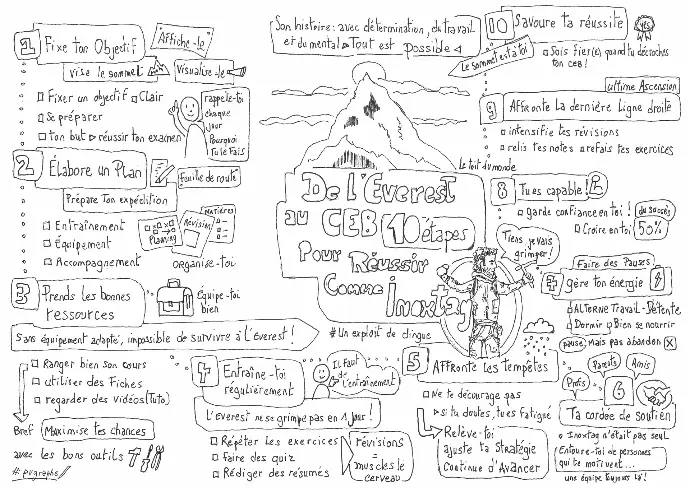 Son histoire : avec détermination, du travail
et du mental ▷ Tout est possible ◁
De l'Everest
au CEB 10 étapes
Pour Réussir
Comme Inoxtag
Le toit du monde
# Un exploit de dingue
Tiens, je vais
grimper !
1 Fixe ton Objectif
Affiche-le
Vise le sommet
Visualise-le
□ Fixer un objectif □ Clair
□ Se préparer
□ ton but ▷ réussir ton examen
rappelle-toi
chaque
jour
Pourquoi
Tu le Fais
2 Élabore un Plan
Feuille de route
Prépare Ton expédition
□ Entraînement
□ Équipement
□ Accompagnement
Planning
Révision
Matières
ORGANISE-toi
3 Prends les bonnes
ressources
Équipe-toi
bien
Sans équipement adapté, impossible de survivre à l'Everest !
□ Ranger bien son cours
□ utiliser des Fiches
□ regarder des vidéos (Tuto)
Bref Maximise tes chances
avec les bons outils
# pvgraphe
4 Entraîne-toi
régulièrement
Il faut
de l'entraînement
L'Everest ne se grimpe pas en 1 jour !
□ Répéter les exercices
□ Faire des quiz
□ Rédiger des résumés
révisions
=
muscles le
cerveau
5 Affronte les tempêtes
□ Ne te décourage pas
▷ si tu doutes, tu es fatigué
Relève-toi
ajuste ta Stratégie
Continue d'Avancer
6
Profs
Parents
Amis
Ta cordée de soutien
□ Inoxtag n'était pas seul
Entoure-toi de personnes
qui te motivent...
une équipe toujours là !
7 Faire des Pauses
gère ton énergie
□ ALTERNE Travail - Détente
□ Dormir □ Bien se nourrir
pause, Mais pas abandon
8 Tu es capable !
□ garde confiance en toi !
□ Croire en toi
du succès
50%
9 Affronte La dernière Ligne droite
ultime Ascension
□ intensifie tes révisions
□ relis tes notes □ refais tes exercices
10 Savoure ta réussite
YES
Le sommet est à toi
□ Sois fier(e) quand tu décroches
ton CEB !